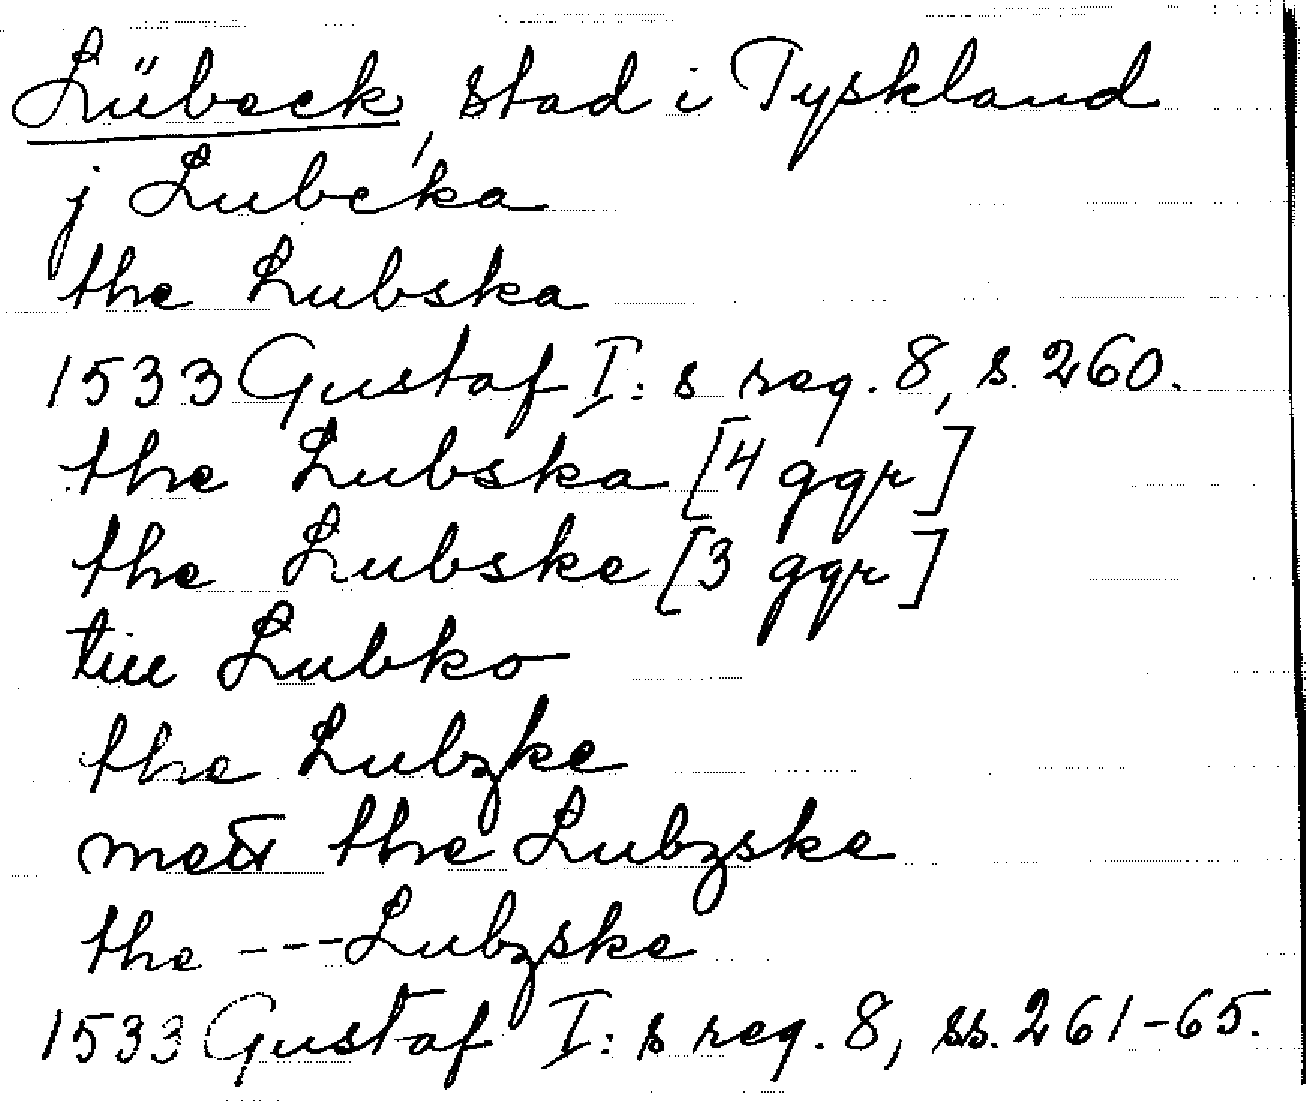 Lübeck, stad i Tyskland
j Lubcka
the Lubska
1533 Gustaf I:s reg. 8, s. 260.
the Lubska [4 ggr]
the Lubske [3 ggr]
till Lubko
the Lubzke
mett the Lubzske
the --- Lubzske
1533 Gustaf I:s reg. 8, ss. 261-65.